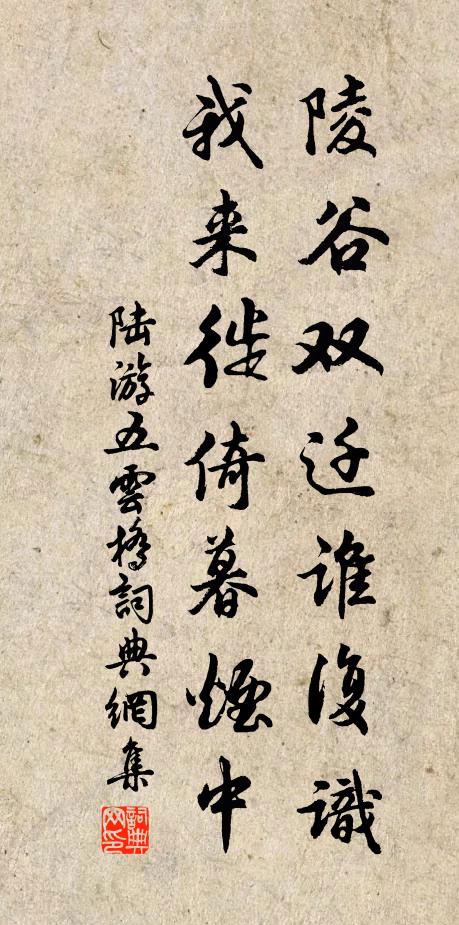 陵谷双迁谁復識
我来徙倚暮煙中
陆游五雲橋詞典網集
詞典网印